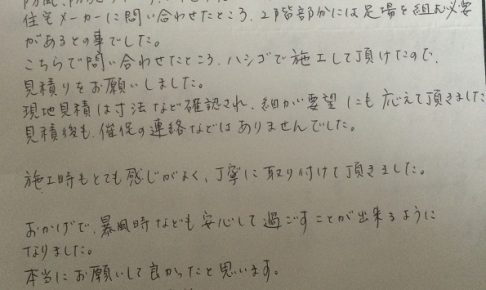 住宅メーカーに問い合わせたところ、2階部分には足場を組む必要
があるとの事でした。
こちらで問い合わせたところ、ハシゴで施工して頂けたので、
見積りをお願いしました。
現地見積は寸法など確認され、細かい要望にも応えて頂きました
見積後も、催促の連絡などはありませんでした。
施工時もとても感じがよく、丁寧に取り付けて頂きました。
おかげで、暴風時なども安心して過ごすことが出来るように
なりました。
本当にお願いして良かったと思います。